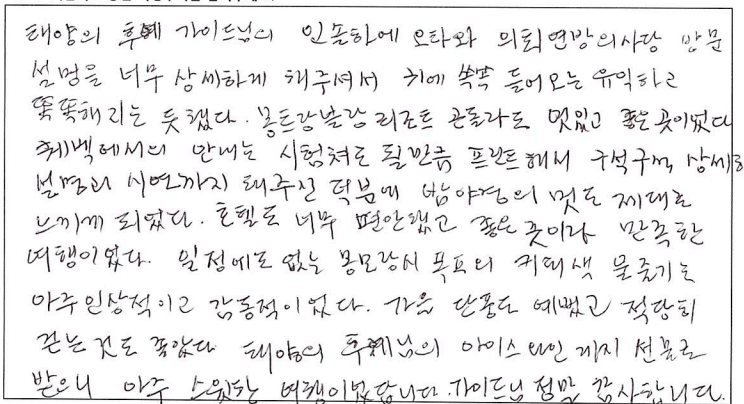 태양의 후예 가이드님의 인솔하에 오타와 의회 연방의사당 방문
설명을 너무 상세하게 해주셔서 귀에 쏙쏙 들어오는 유익하고
똑똑해지는 듯했다. 몽트랑블랑 리조트 곤돌라도 멋있고 좋은 곳이었다
퀘벡에서의 안내는 시험쳐도 될만큼 프린트해서 구석구석 상세한
설명과 시연까지 해주신 덕분에 밤야경의 멋도 제대로
느끼게 되었다. 호텔도 너무 편안했고 좋은 곳이라 만족한
여행이었다. 일정에도 없는 몽모랑시 폭포의 커피색 물줄기는
아주 인상적이고 감동적이었다. 가을 단풍도 예뻤고 적당히
걷는 것도 좋았다 태양의 후예님의 아이스와인 까지 선물로
받으니 아주 스윗한 여행이었답니다. 가이드님 정말 감사합니다.